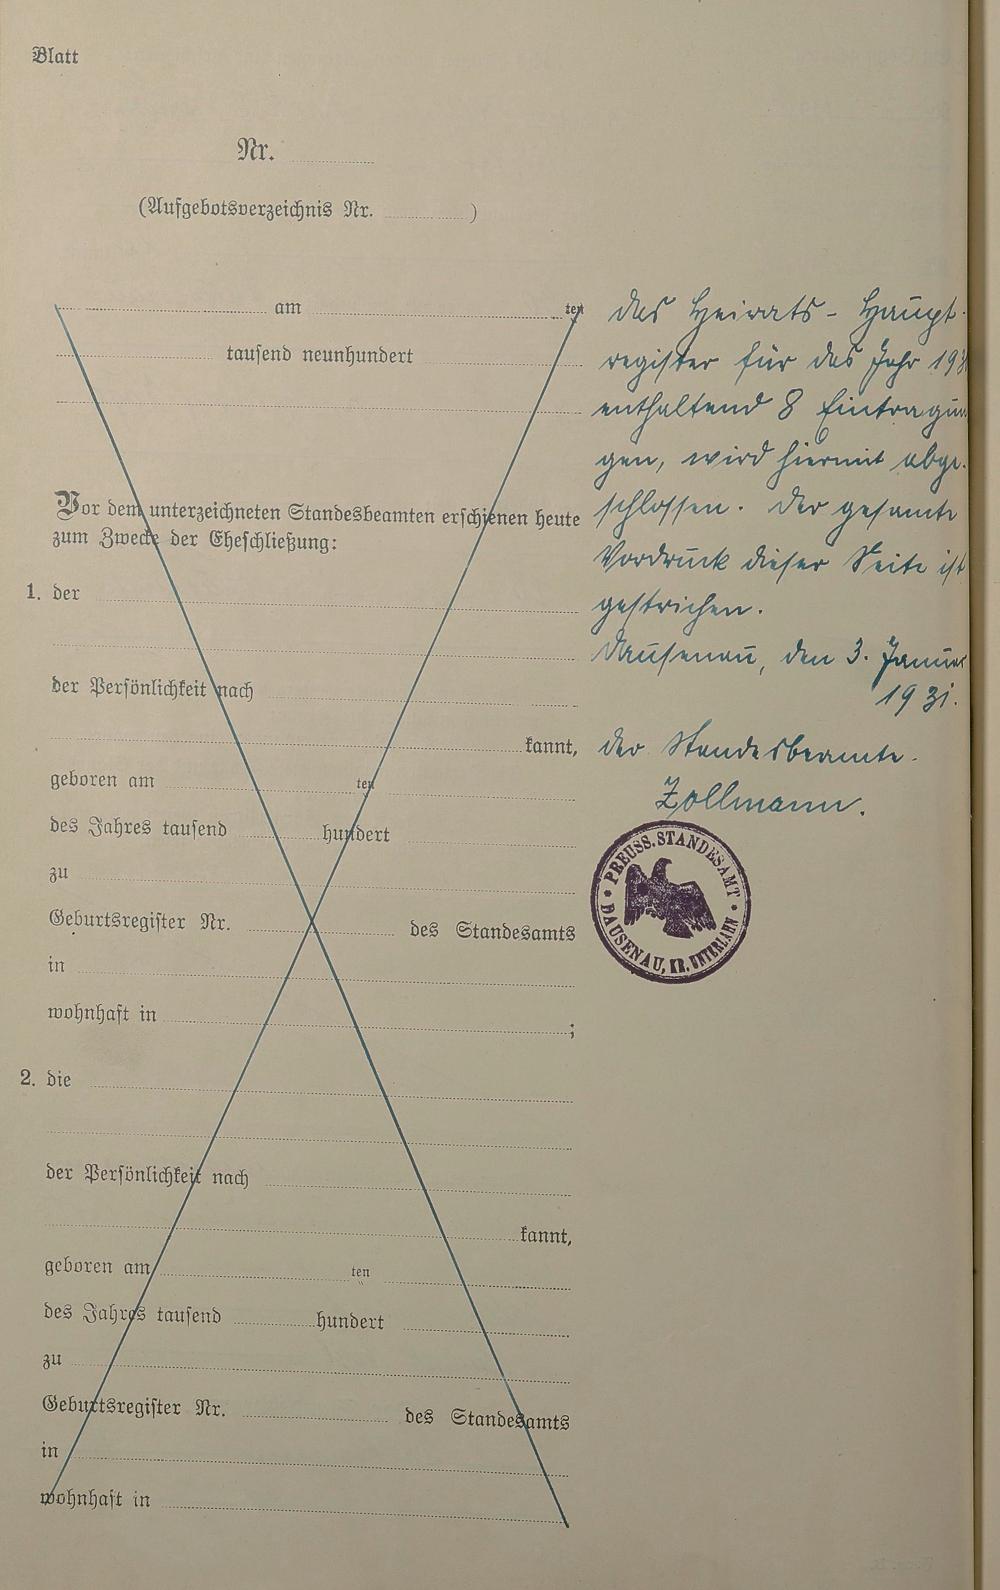 Blatt
Nr.
(Aufgebotsverzeichnis Nr. )
am ten
tausend neunhundert
Vor dem unterzeichneten Standesbeamten erschienen heute
zum Zwecke der Eheschließung:
1. der
der Persönlichkeit nach
kannt,
geboren am ten
des Jahres tausend hundert
zu
Geburtsregister Nr. des Standesamts
in
wohnhaft in ;
2. die
der Persönlichkeit nach
kannt,
geboren am ten
des Jahres tausend hundert
zu
Geburtsregister Nr. des Standesamts
in
wohnhaft in
Das Heirats- Haupt-
register für das Jahr
enthaltend 8 Eintragun
gen, wird hiermit abge-
schlossen. Der gesamte
Vordruck dieser Seite ist
gestrichen.
Dausenau, den 3. Januar
1931.
Der Standesbeamte.
Zollmann.
PREUSS. STANDESAMT
DAUSENAU, KR. UNTERLAHN